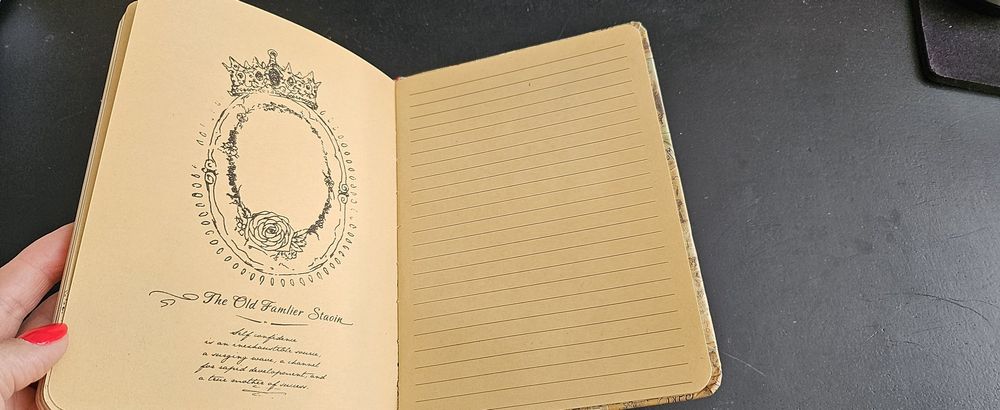 The Old Famlier Staoin
Self confidence
is an inexhaustible source,
a surging wave, a channel
for rapid development, and
a true mother of success.